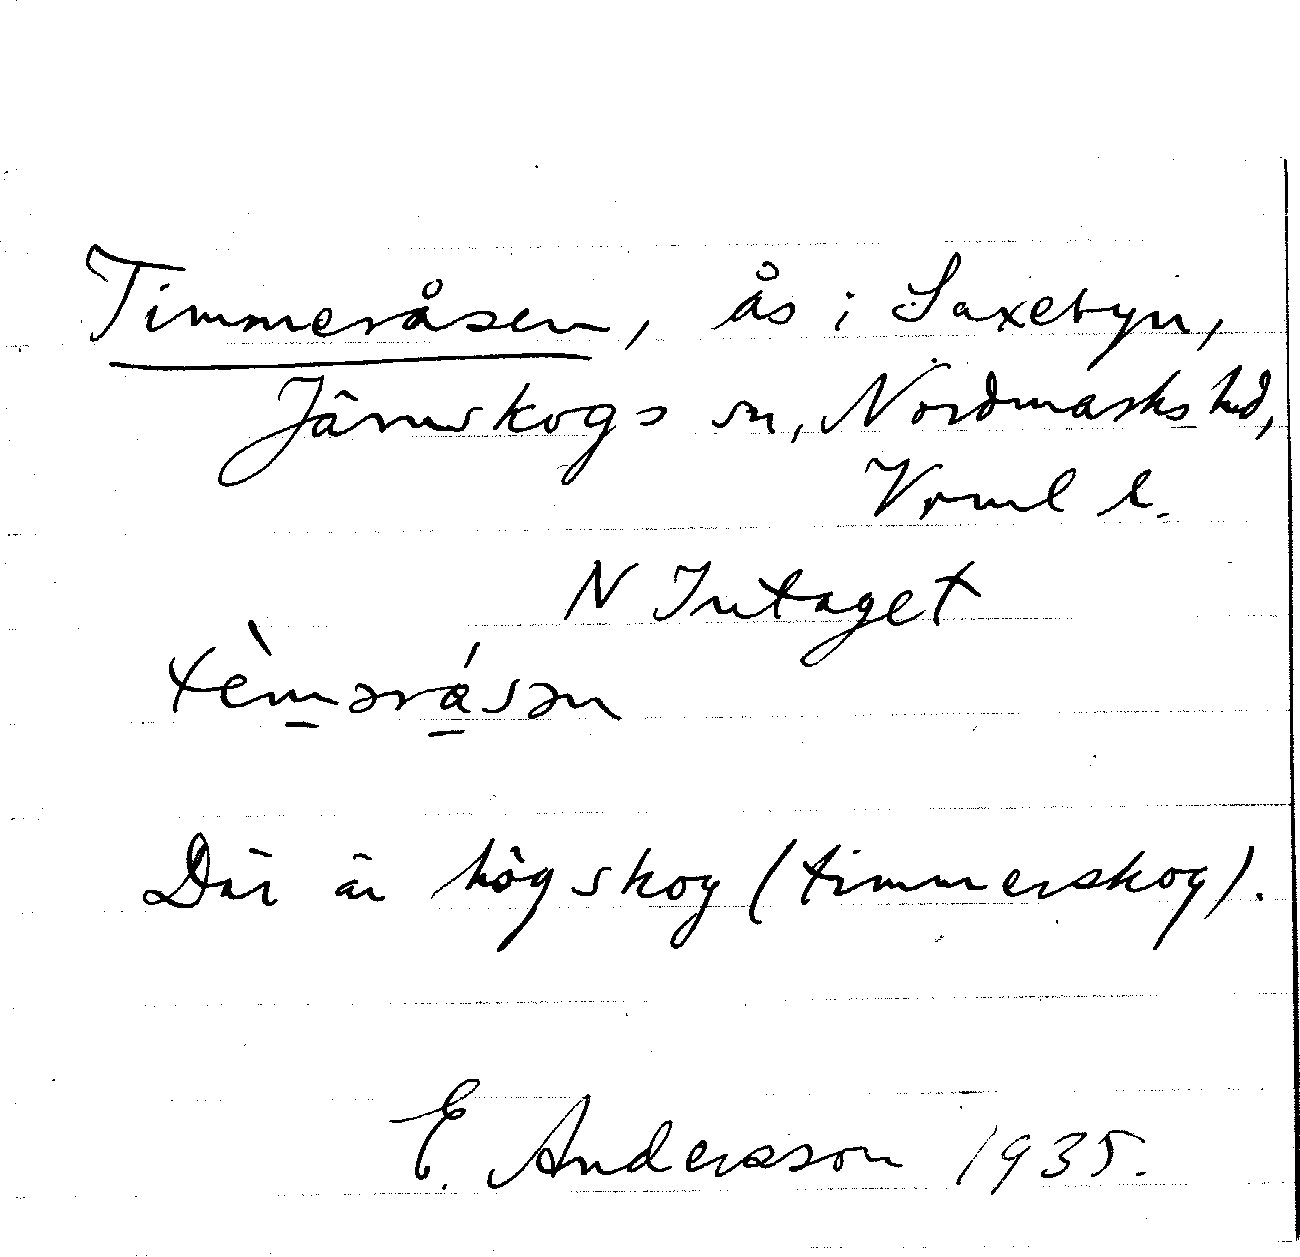 Timmeråsen, ås i Saxebyn,
Järnskogs sn, Nordmarks hd,
Vrml l.
N Intaget
tèmərásən
Där är högskog (timmerskog).
E. Andersson 1935.